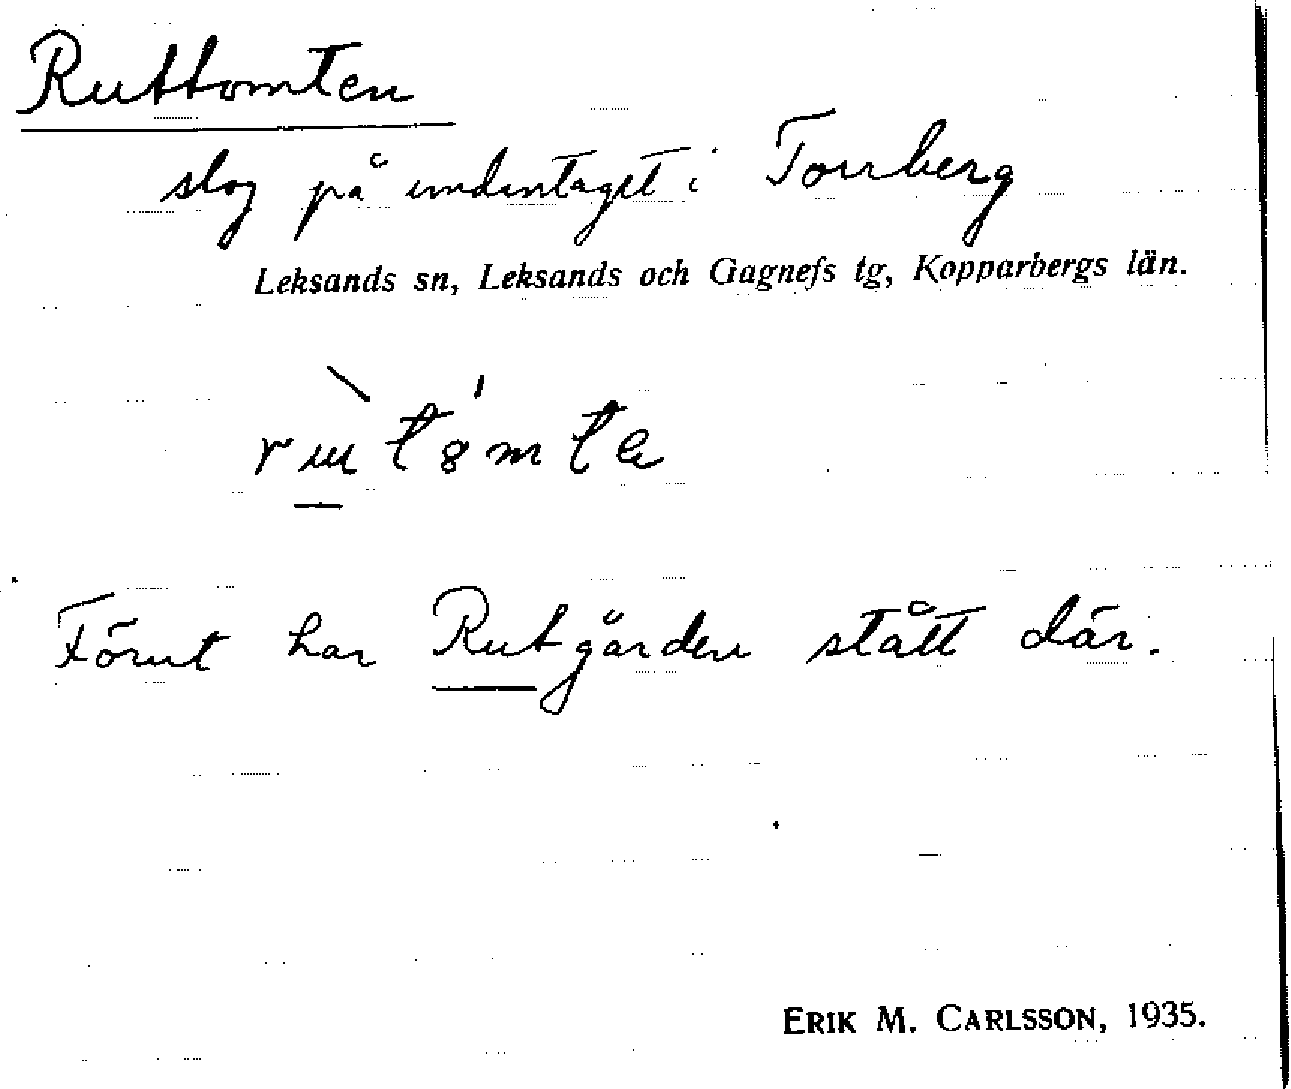 Ruttomten
slog på undantaget i Torrberg
Leksands sn, Leksands och Gagnefs tg, Kopparbergs län.
Förut har Rutgården stått där.
ERIK M. CARLSSON, 1935.